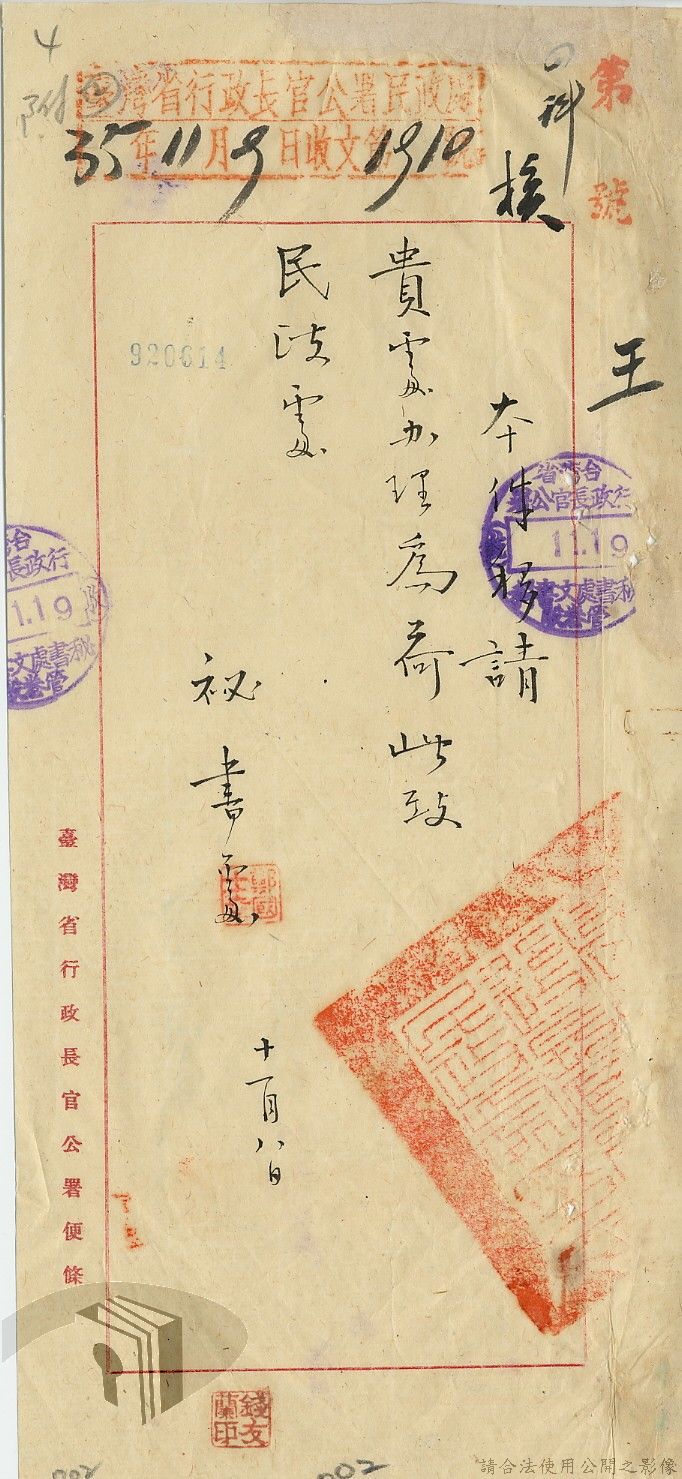 4
附
臺灣省行政長官公署民政處
35年11月9日收文第1910號
第 號
核
王
本件移請
貴處办理為荷此致
民政處
秘書處
十一月八日
920614
台灣省
行政長官公
11.19
秘書處文
管
行政長
1.19
秘書處文
管
臺灣省行政長官公署便條
錢文蘭印
002
002
請合法使用公開之影像